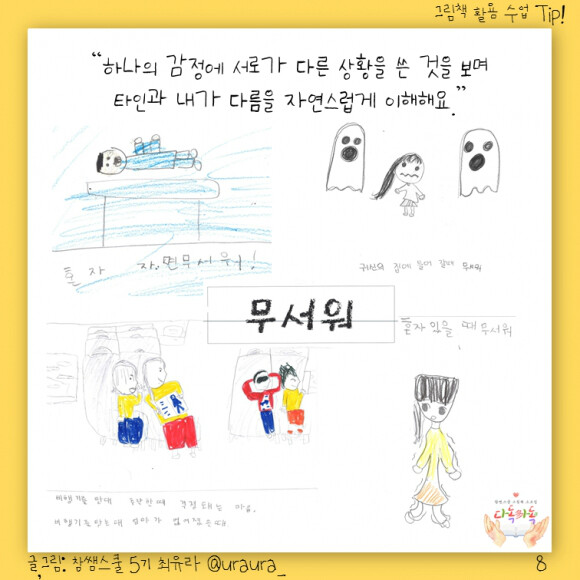 그림책 활용 수업 Tip!
“하나의 감정에 서로가 다른 상황을 쓴 것을 보며
타인과 내가 다름을 자연스럽게 이해해요.”
혼자 자면무서워!
귀신의 집에 들어 갈때 무서워
무서워
혼자 있을 때 무서워
비행기를 탄대
비행기를탄는대 엄마가 없어졌을때
다독다독
글,그림: 참쌤스쿨 5기 최유라 @uraura_
8